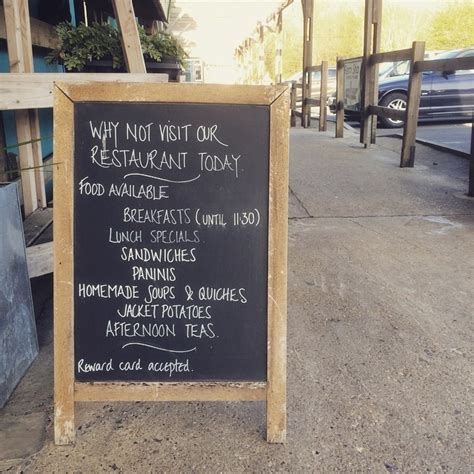 WHY NOT VISIT OUR
RESTAURANT TODAY.
FOOD AVAILABLE
BREAKFASTS (UNTIL 11:30)
LUNCH SPECIALS.
SANDWICHES
PANINIS
HOMEMADE SOUPS & QUICHES
JACKET POTATOES
AFTERNOON TEAS.
Reward card accepted.